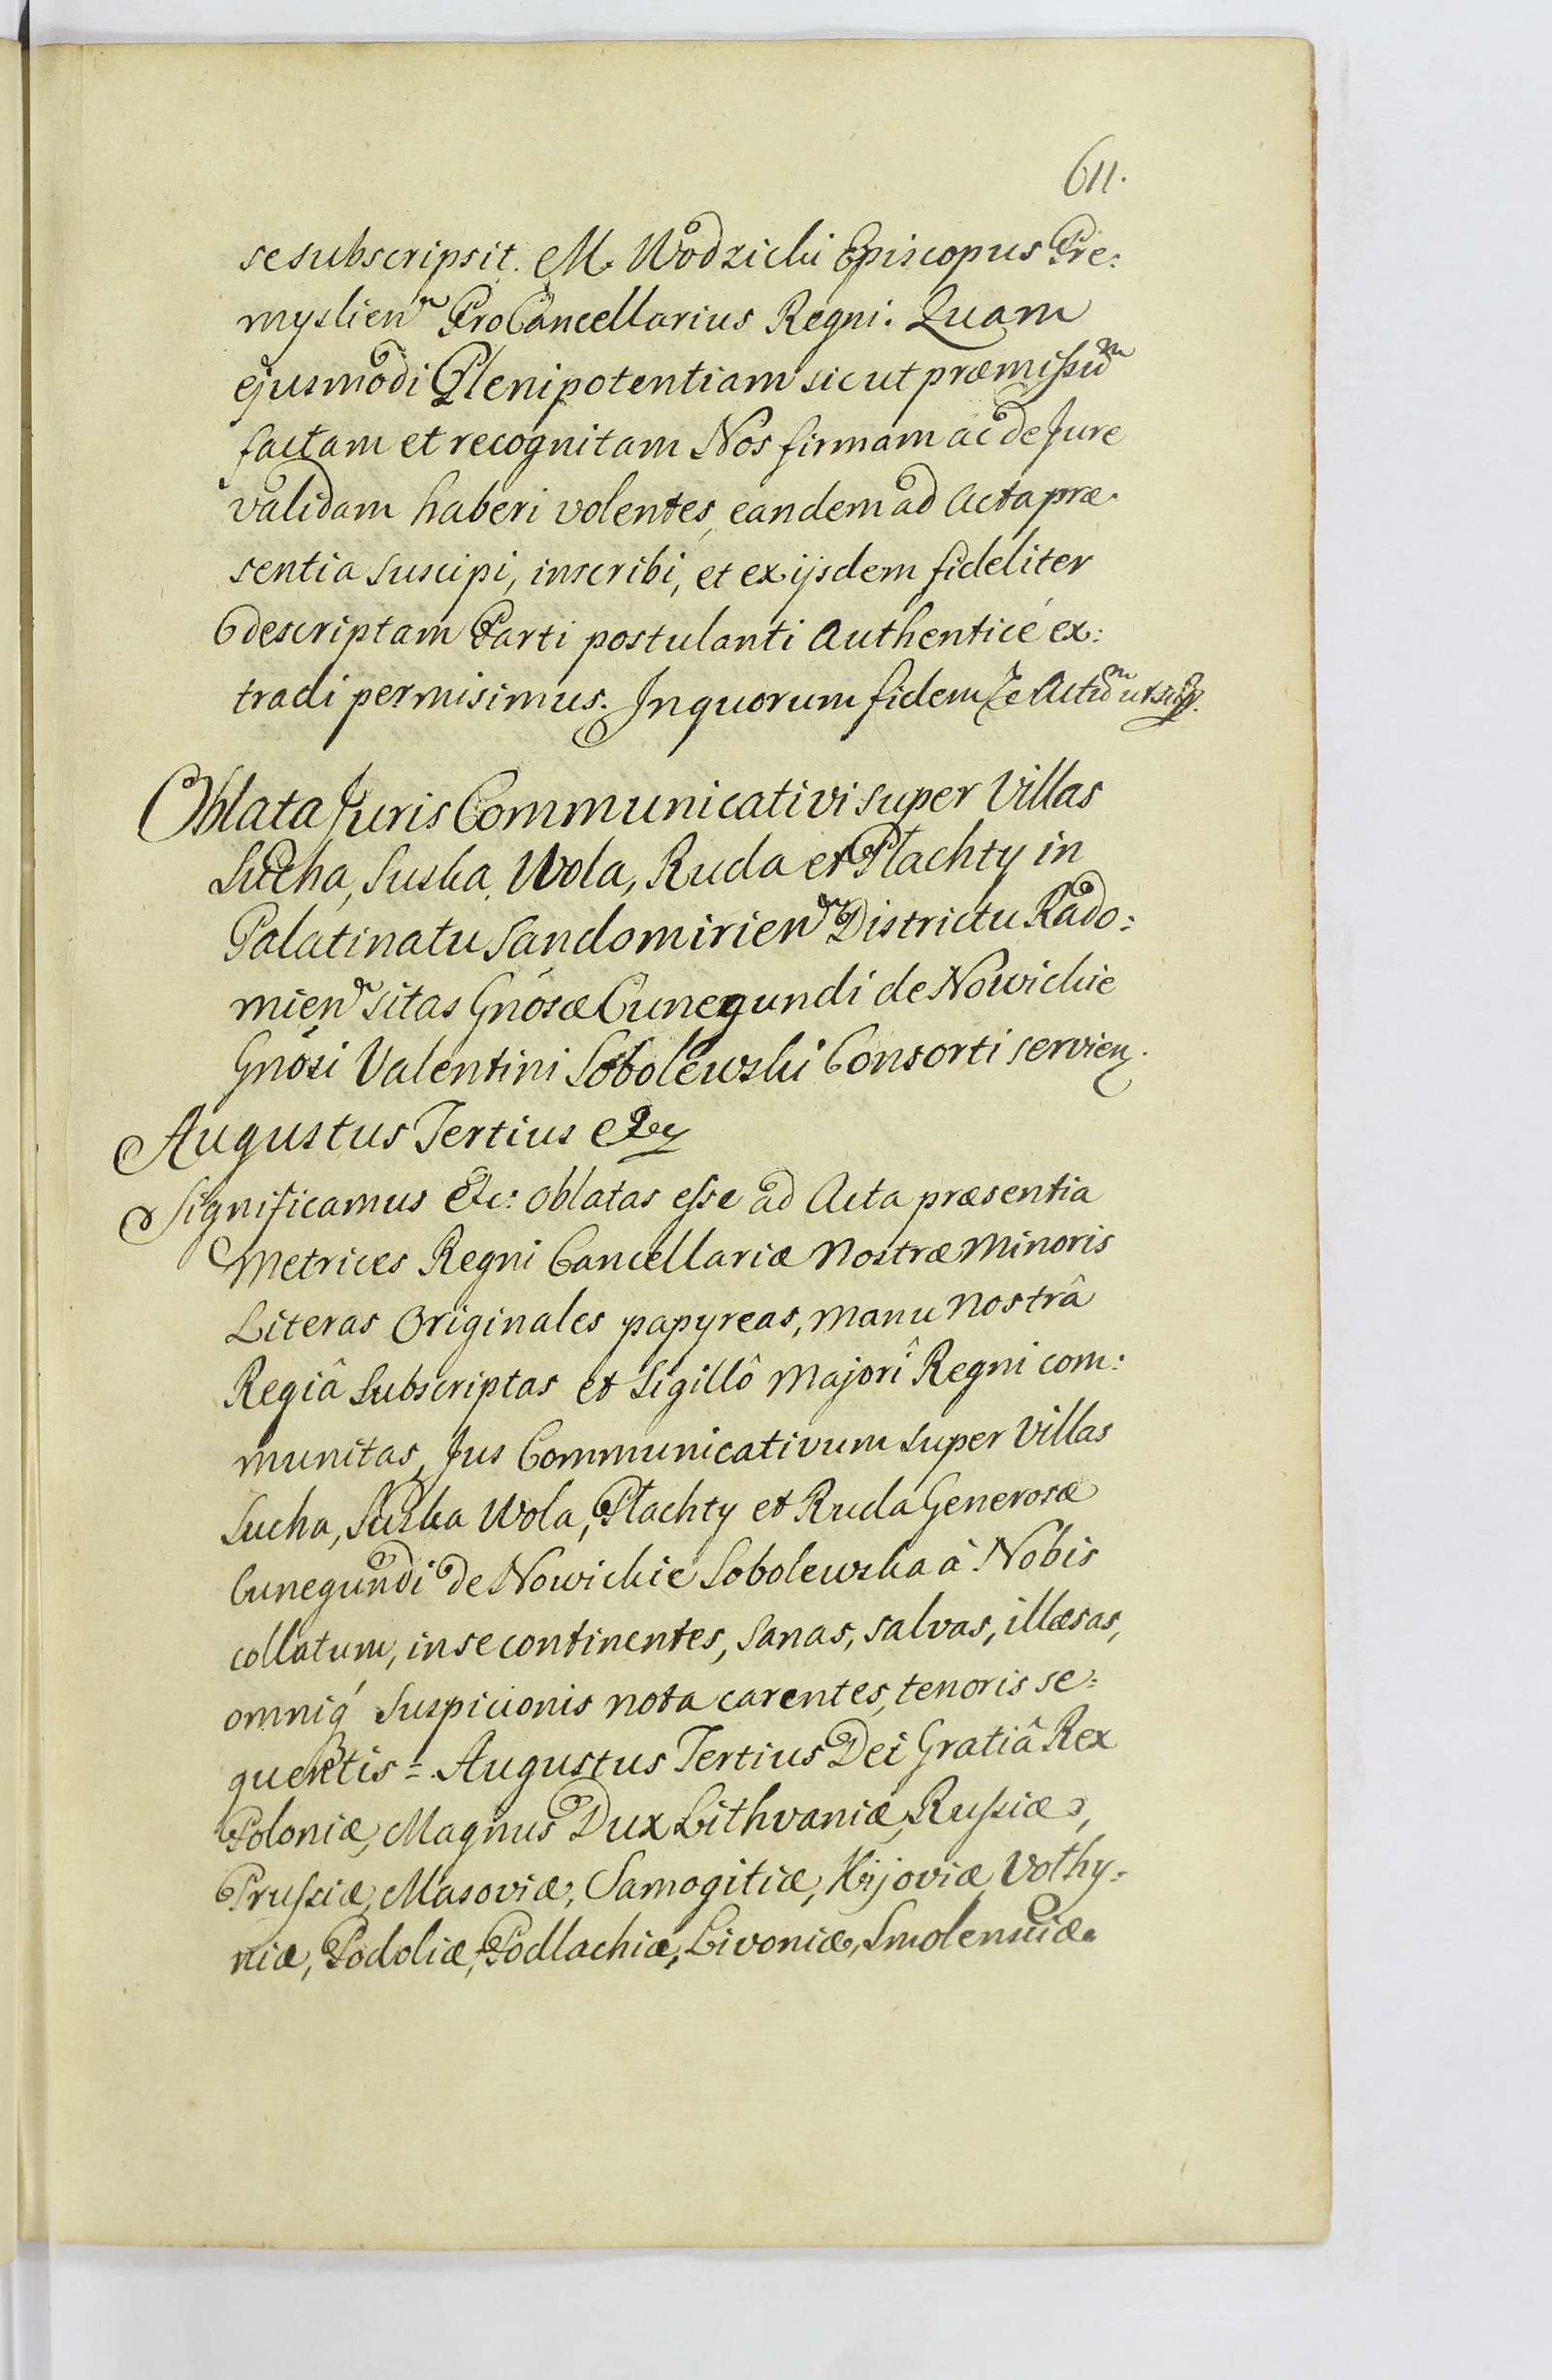 611.
se subscripsit. M. Wodzicki Episcopus Pre:
myslien̄ ProCancellarius Regni. Quam
ejusmodi Plenipotentiam sicut præmissũ
factam et recognitam Nos firmam ac de Jure
validam haberi volentes, eandem ad Acta præ.
sentia suscipi, inscribi, et ex ijsdem fideliter
descriptam Parti postulanti Authenticé ex:
tradi permisimus. In quorum fidem Actũ ut supr.
Oblata Juris Communicativi super Villas
Sucha, Suska, Wola, Ruda et Płachty in
Palatinatu Sandomirien̄ Districtu Rado:
mien̄ sitas Gnosæ Cunegundi de Nowickie
Gnosi Valentini Sobolewski Consorti servien.
Augustus Tertius &c
Significamus &c: Oblatas esse ad Acta præsentia
Metrices Regni Cancellariæ Nostræ Minoris
Literas Originales papyreas, Manu Nostrâ
Regiâ Subscriptas et Sigillô Majori Regni com:
munitas, Jus Communicativum super Villas
Sucha, Suska Wola, Płachty et Ruda Generosæ
Cunegundi de Nowickie Sobolewska à Nobis
collatum, in se continentes, Sanas, salvas, illæsas,
omniq́ Suspicionis nota carentes, tenoris se:
quentis = Augustus Tertius Dei Gratiâ Rex
Poloniæ, Magnus Dux Lithvaniæ, Russiæ,
Prussiæ, Masoviæ, Samogitiæ, Kijoviæ Vołhy:
niæ, Podoliæ, Podlachiæ, Livoniæ, Smolensciæ